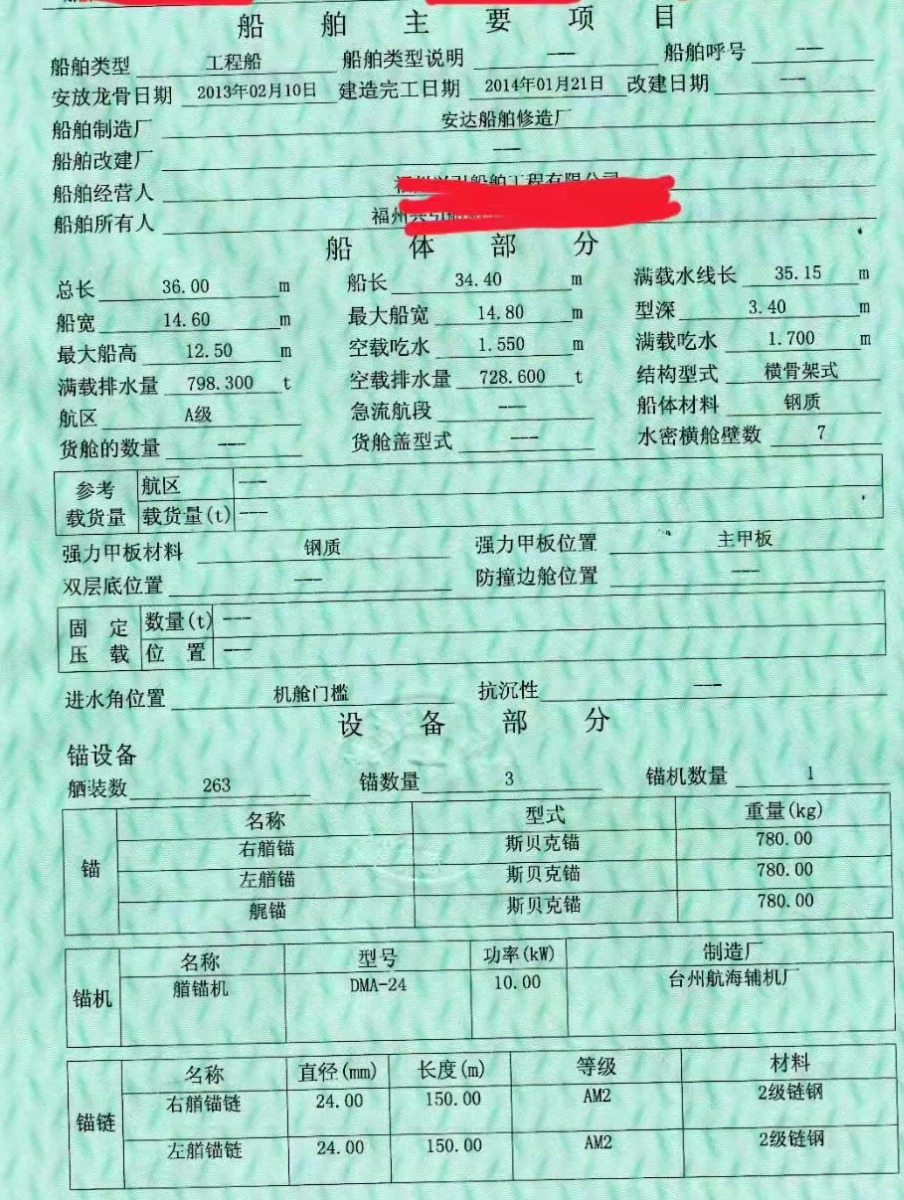 船舶主要项目
船舶类型 工程船 船舶类型说明 --- 船舶呼号 ---
安放龙骨日期 2013年02月10日 建造完工日期 2014年01月21日 改建日期 ---
船舶制造厂 安达船舶修造厂
船舶改建厂 ---
船舶经营人 船舶工程有限公司
船舶所有人 福州
船体部分
总长 36.00 m 船长 34.40 m 满载水线长 35.15 m
船宽 14.60 m 最大船宽 14.80 m 型深 3.40 m
最大船高 12.50 m 空载吃水 1.550 m 满载吃水 1.700 m
满载排水量 798.300 t 空载排水量 728.600 t 结构型式 横骨架式
航区 A级 急流航段 --- 船体材料 钢质
货舱的数量 --- 货舱盖型式 --- 水密横舱壁数 7
参考载货量 航区 ---
载货量(t) ---
强力甲板材料 钢质 强力甲板位置 主甲板
双层底位置 --- 防撞边舱位置 ---
固定压载 数量(t) ---
位置 ---
进水角位置 机舱门槛 抗沉性 ---
设备部分
锚设备
舾装数 263 锚数量 3 锚机数量 1
锚 名称 型式 重量(kg)
右艏锚 斯贝克锚 780.00
左艏锚 斯贝克锚 780.00
艉锚 斯贝克锚 780.00
锚机 名称 型号 功率(kW) 制造厂
艏锚机 DMA-24 10.00 台州航海辅机厂
锚链 名称 直径(mm) 长度(m) 等级 材料
右艏锚链 24.00 150.00 AM2 2级链钢
左艏锚链 24.00 150.00 AM2 2级链钢